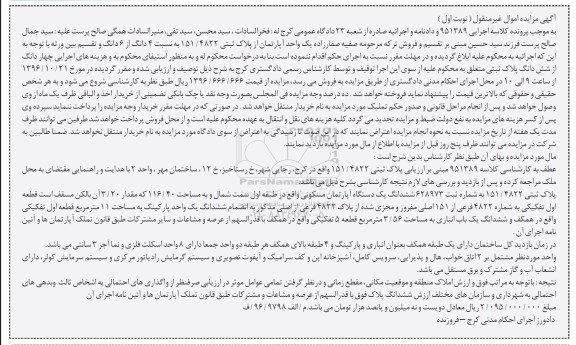 آگهی مزایده اموال غیرمنقول ( نوبت اول )
به موجب پرونده کلاسه اجرایی ۹۵۱۳۸۹ و دادنامه و اجرائیه صادره از شعبه ۲۳ دادگاه عمومی کرج له : فخرالسادات ، سید محسن، سید تقی، منیرالسادات همگی صالح پرست علیه : سید جمال
صالح پرست فرزند سید حسین مبنی بر تقسیم و فروش ترکه مرحومه صفیه صفارزاده یک واحد آپارتمان از پلاک ثبتی ۴۸۲۲ / ۱۵۱ به نسبت ۴ دانگ از ۶ دانگ و تقسیم بین ورثه با توجه به
این که اجرائیه به محکوم علیه ابلاغ گردیده و در مهلت مقرر نسبت به اجرای حکم اقدام ننموده است بنا به درخواست محکوم له و به منظور استیفای محکوم به و هزینه های اجرایی چهار دانگ
از شش دانگ پلاک ثبتی متعلق به محکوم علیه از سوی این اجرا توقیف و توسط کارشناس رسمی دادگستری کرج به شرح ذیل توصیف و ارزیابی شده و مقرر گردیده در مورخ ۱۳۹۶/۱۰/۲۱
از ساعت ۹ الی ۱۰ در محل اجرای احکام مدنی دادگستری از طریق مزایده به فروش می رسد، مزایده از قیمت ۶۶۶/ ۶۶۶/ ۱۳۹۶ ریال طبق نظریه کارشناسی شروع می شود و به هر شخص
حقیقی و حقوقی که بالاترین قیمت را پیشنهاد نماید فروخته خواهد شد . ده درصد وجه مزایده فی المجلس بصورت وجه نقد یا چک بانکی تضمینی از خریدار اخذ و الباقی ظرف یک ماه از وی
وصول خواهد شد و پس از انجام مراحل قانونی و صدور حکم تملیک مورد مزایده به نام خریدار منتقل خواهد شد . در صورتی که در مهلت مقرر خریدار وجه مزایده را پرداخت ننماید سپرده وی
پس از کسر هزینه های مزایده به نفع دولت ضبط و مزایده تجدید می گردد کلیه هزینه های نقل و انتقال به عهده محکوم علیه است و از محل فروش پرداخت خواهد شد طرفین می توانند ظرف
مدت یک هفته از تاریخ مزایده نسبت به نحوه انجام مزایده اعتراض نمایند که در این صورت تا رسیدگی به اعتراض از سوی دادگاه مورد مزایده به نام خریدار منتقل نخواهد شد ضمنا طالبین به
شرکت در مزایده می توانند ظرف پنج روز قبل از مزایده با اطلاع از مال مورد مزایده بازدید نمایند.
مال مورد مزایده و بهای آن طبق نظر کارشناس بدین شرح است :
عطف به کارشناسی کلاسه ۹۵۱۳۸۹ مبنی بر ارزیابی پلاک ثبتی ۴۸۲۲/ ۱۵۱ واقع در کرج، رجایی شهر، خ رستاخیز، خ ۱۲ ، ساختمان مهر ، واحد ۲ با هدایت و راهنمایی مقتضای به محل
ملک مراجعه کرده و پس از بازدید و بررسی های لازم نتیجه کارشناسی بشرح ذیل می باشد.
پلاک ثبتی ۴۸۲۲/ ۱۵۱ به شماره ثبت ۶۲۸۹۷۳ ششدانگ یک دستگاه آپارتمان مسکونی واقع در طبقه اول سمت شمال و به مساحت ۱۱۶/۴۰ که مقدار ۳/۲۰ آن بالکن مسقف است قطعه
اول تفکیکی به شماره ۴۸۲۲ فرعی از ۱۵۱ اصلی مفروز و مجزی شده از پلاک ۴۸۳۳ فرعی از اصلی مذکور به انضمام ششدانگ یک واحد پارکینگ به مساحت ۱۱ مترمربع قطعه اول تفکیکی
واقع در همکف و ششدانگ یک باب انباری به مساحت ۳/۵۶ مترمربع قطعه ۵ تفکیکی واقع در همکف با قدرالسهم از عرصه و مشاعات و سایر مشترکات طبق قانون تملک آپارتمان ها و آئین
نامه اجرای آن .
در زمان بازدید کل ساختمان دارای یک طبقه همکف بعنوان انباری و پارکینگ و ۴ طبقه بالای همکف هر طبقه دو واحد جمعا دارای ۸ واحد اسکلت فلزی و نما آجر ۳ سانتی می باشد.
واحد مورد نظر مشتمل بر ۲ اتاق خواب، هال و پذیرایی، سرویس کامل، آشپزخانه اپن و کف سرامیک و آیفون تصویری و سیستم گرمایش رادیاتور مرکزی و سیستم سرمایش کولر، دارای
انشعاب آب و گاز مشترک و برق مستقل می باشد.
نتیجه : با توجه به مراتب فوق و ارزش املاک منطقه و موقعیت مکانی، مقطع زمانی و در نظر گرفتن تمامی عوامل موثر در ارزیابی صرفنظر از واگذاری های احتمالی به اشخاص ثالث و بدهی های
احتمالی به شهرداری و سازمان های مختلف ارزش ششدانگ پلاک فوق با قدرالسهم از عرصه و مشاعات و مشترکات طبق قانون تملک آپارتمان ها و آئین نامه اجرای آن
مبلغ ۰۰۰ / ۰۰۰ / ۰۹۵/ ۲ ریال معادل دویست و نه میلیون و پانصد هزار تومان می باشد. م / الف ۹۷۹۸/ ۹۶ / ف
دادورز اجرای احکام مدنی کرج – فروزنده